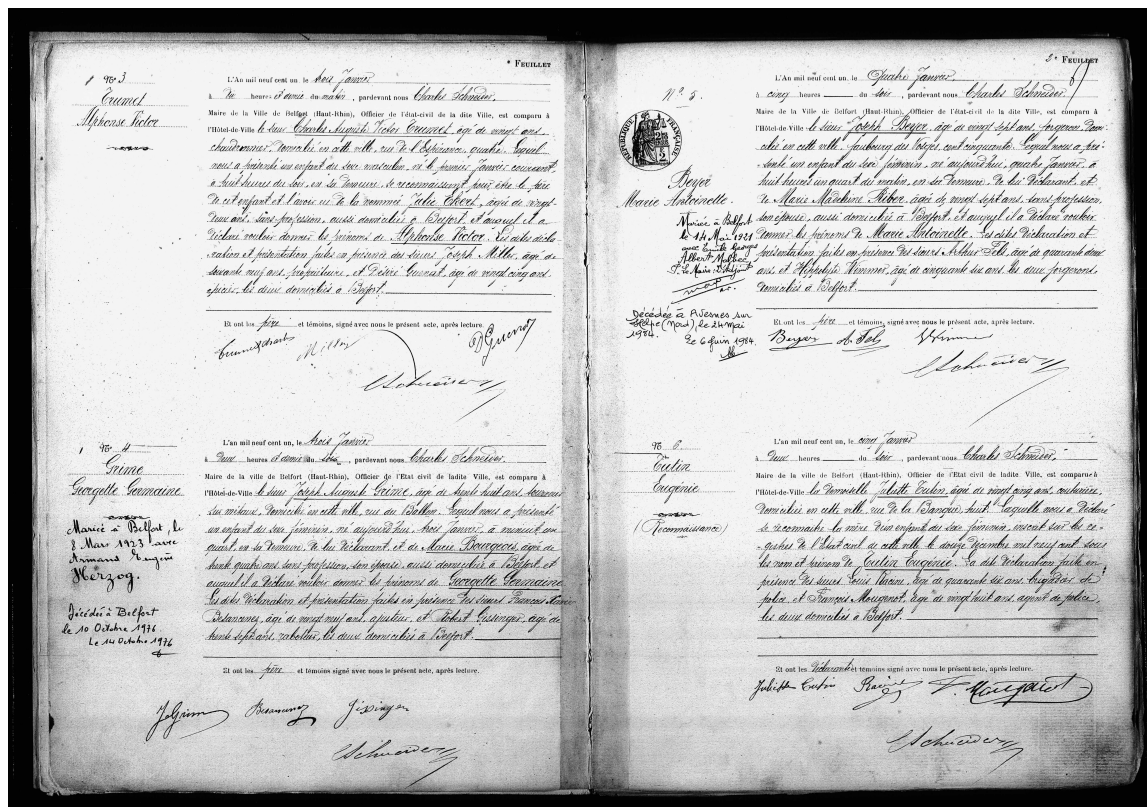 * FEUILLET
N° 3
Trumet
Alphonse Victor
L'An mil neuf cent un, le trois Janvier
à dix heures et demie du matin, pardevant nous Charles Schneider,
Maire de la Ville de Belfort (Haut-Rhin), Officier de l'état-civil de la dite Ville, est comparu à
l'Hôtel-de-Ville le sieur Charles Auguste Victor Trumet, âgé de vingt ans,
chaudronnier, domicilié en cette ville, rue de l'Espérance, quatre. Lequel
nous a présenté un enfant du sexe masculin, né le premier Janvier courant,
à huit heures du soir, en sa demeure, se reconnaissant pour être le père
de cet enfant et l'avoir eu de la nommée Julie, âgée de vingt
deux ans, sans profession, aussi domiciliée à Belfort, et auquel il a
déclaré vouloir donner les prénoms de Alphonse Victor. Les dites décla
ration et présentation faites en présence des sieurs Joseph Miller, âgé de
soixante neuf ans, propriétaire, et Désiré, âgé de vingt cinq ans
épicier, les deux domiciliés à Belfort.
Et ont les père et témoins, signé avec nous le présent acte, après lecture.
Trumet Charles Miller
CSchneider
N° 4
Grime
Georgette Germaine
Mariée à Belfort, le
8 Mars 1923 avec
Armand Eugène
Herzog.
Décédée à Belfort
le 10 Octobre 1976
Le 14 Octobre 1976
L'an mil neuf cent un, le trois Janvier
à deux heures et demie du soir, pardevant nous Charles Schneider
Maire de la ville de Belfort (Haut-Rhin), Officier de l'Etat civil de ladite Ville, est comparu à
l'Hôtel-de-Ville le sieur Joseph Auguste Grime, âgé de trente huit ans, tourneur
sur métaux, domicilié en cette ville, rue du Ballon. Lequel nous a présenté
un enfant du sexe féminin, né aujourd'hui, trois Janvier, à minuit un
quart, en sa demeure, de lui déclarant, et de Marie Bourgeois, âgée de
trente quatre ans sans profession, son épouse, aussi domiciliée à Belfort, et
auquel il a déclaré vouloir donner les prénoms de Georgette Germaine
Les dites déclaration et présentation faites en présence des sieurs François Xavier
Besançenez, âgé de vingt neuf ans, ajusteur, et Robert Gissinger, âgé de
trente sept ans, raboteur, les deux domiciliés à Belfort.
Et ont les père et témoins signé avec nous le présent acte, après lecture.
JGrime Besancenez Gissinger
CSchneider
2e FEUILLET
N° 5.
RÉPUBLIQUE FRANÇAISE
Beyer
Marie Antoinette.
Mariée à Belfort
le 14 Mai 1921
avec Emile Georges
Albert
Décédée à Avesnes sur
Helpe (Nord), le 24 mai
1984.
Le 6 juin 1984.
L'An mil neuf cent un, le Quatre Janvier
à cinq heures du soir, pardevant nous Charles Schneider
Maire de la Ville de Belfort (Haut-Rhin), Officier de l'état-civil de la dite Ville, est comparu à
l'Hôtel-de-Ville le sieur Joseph Beyer, âgé de vingt sept ans, forgeron, domi
cilié en cette ville, faubourg des Vosges, cent cinquante. Lequel nous a pré
senté un enfant du sexe féminin, né aujourd'hui, quatre Janvier, à
huit heures un quart du matin, en sa demeure, de lui déclarant, et
de Marie Madeleine Riber, âgée de vingt sept ans, sans profession,
son épouse, aussi domiciliée à Belfort, et auquel il a déclaré vouloir
donner les prénoms de Marie Antoinette. Les dites déclaration et
présentation faites en présence des sieurs Arthur Fels, âgé de quarante deux
ans, et Hippolyte Wimmer, âgé de cinquante six ans, les deux forgerons
domiciliés à Belfort.
Et ont les père et témoins, signé avec nous le présent acte, après lecture.
Beyer A. Fels Wimmer
CSchneider
N° 6
Tulin
Eugénie
(Reconnaissance)
L'an mil neuf cent un, le cinq Janvier
à deux heures du soir, pardevant nous Charles Schneider
Maire de la Ville de Belfort (Haut-Rhin), Officier de l'Etat civil de ladite Ville, est comparue à
l'Hôtel-de-Ville la Demoiselle Juliette Tulin, âgée de vingt cinq ans, couturière,
domiciliée en cette ville, rue de la Banque, huit. Laquelle nous a déclaré
se reconnaître la mère d'un enfant du sexe féminin, inscrit sur les re-
gistres de l'Etat civil de cette ville, le douze décembre mil neuf cent, sous
les nom et prénom de Tulin Eugénie. La dite déclaration faite en
présence des sieurs Louis Racine, âgé de quarante six ans, brigadier de
police, et François Mougenot, âgé de vingt huit ans, agent de police,
les deux domiciliés à Belfort.
Et ont les déclarante et témoins signé avec nous le présent acte, après lecture.
Juliette Tulin Racine F. Mougenot
CSchneider